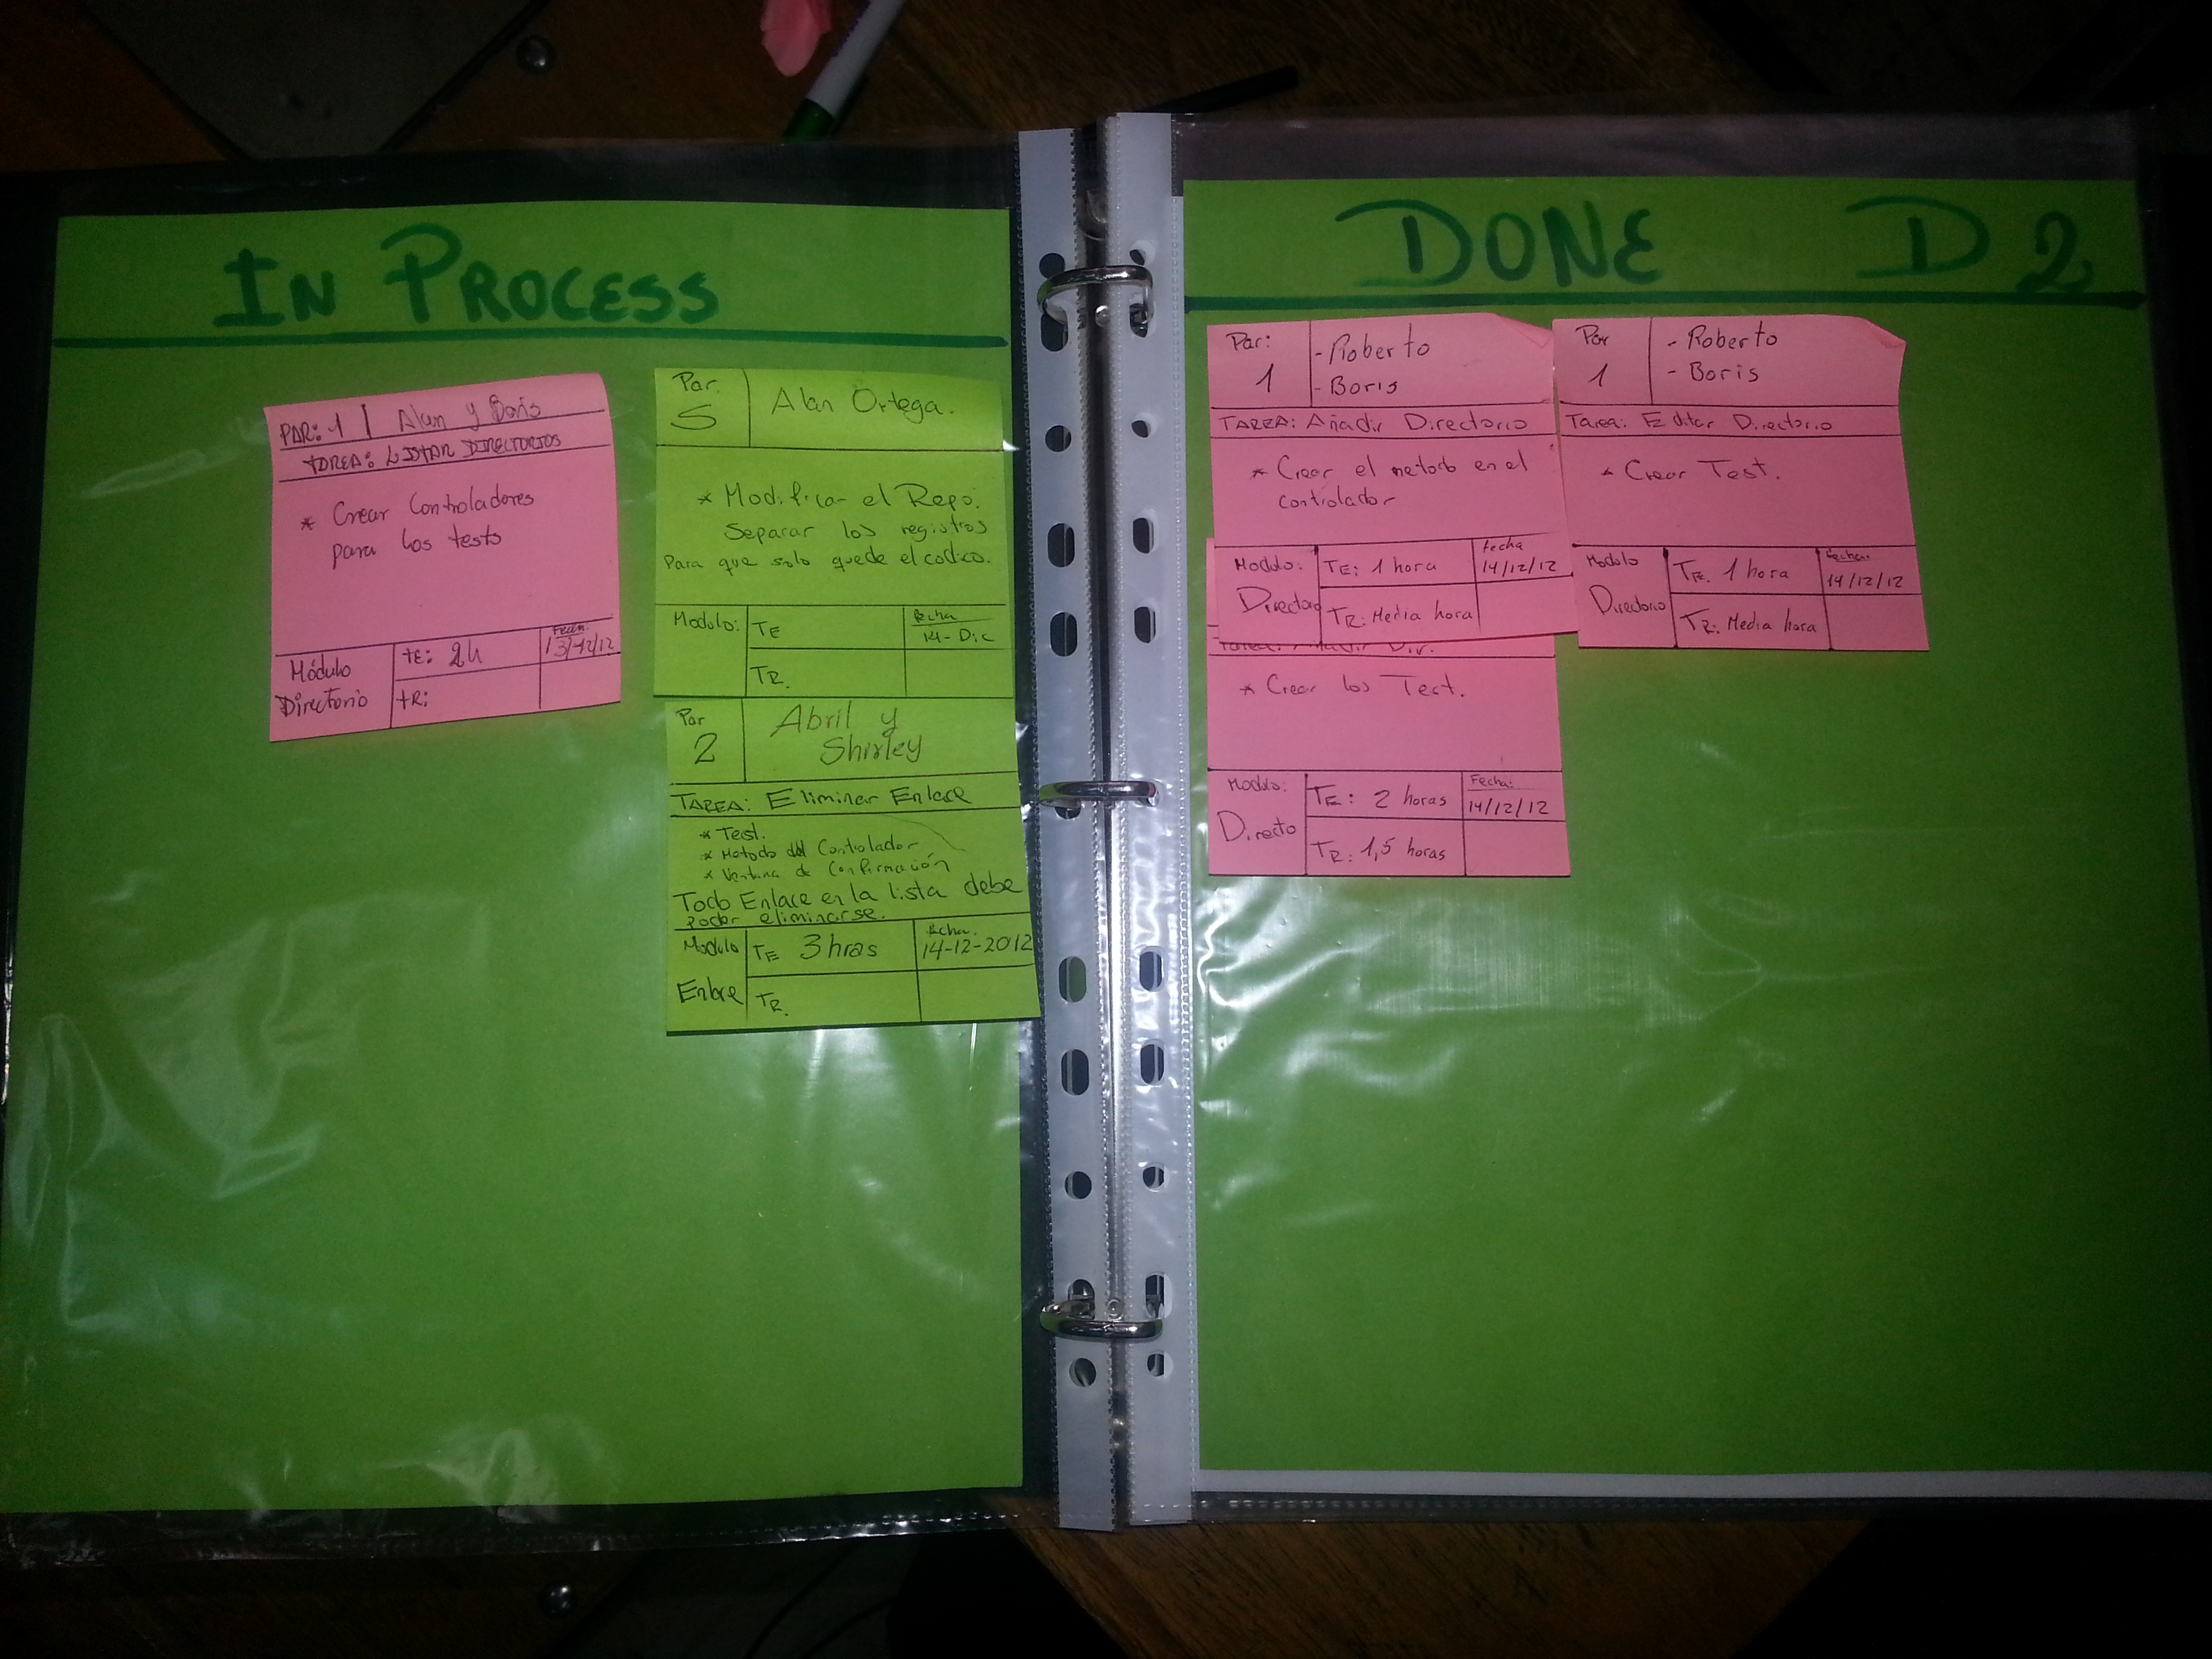 IN PROCESS
PAR: 1 Alan y Boris
TAREA: LISTAR DIRECTORIOS
* Crear Controladores
para los tests
Módulo
Directorio
tE: 2h
tR:
Fecha:
13/12/12
Par.
5
Alan Ortega.
* Modificar el Repo.
Separar los registros
Para que solo quede el codico.
Modulo:
TE
TR.
fecha
14-Dic
Par
2
Abril y
Shirley
TAREA: Eliminar Enlace
* Test.
* Metodo del Controlador
* Ventana de Confirmación
Todo Enlace en la lista debe
poder eliminarse.
Modulo
Enlace
TE 3 hras
TR.
fecha.
14-12-2012
DONE D2
Par:
1
- Roberto
- Boris
TAREA: Añadir Directorio
* Crear el metodo en el
controlador
Modulo:
Directorio
TE: 1 hora
TR: Media hora
fecha
14/12/12
Par
1
- Roberto
- Boris
Tarea: Editar Directorio
* Crear Test.
Modulo
Directorio
TE. 1 hora
TR: Media hora
fecha:
14/12/12
Tarea: Añadir Dir.
* Crear los Test.
Modulo:
Directo
TE: 2 horas
TR: 1,5 horas
Fecha:
14/12/12